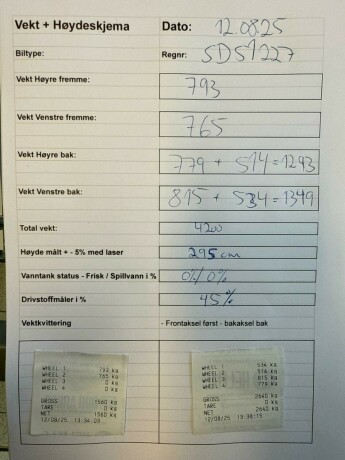 Vekt + Høydeskjema Dato: 12.08.25
Biltype: Regnr: SD51227
Vekt Høyre fremme: 793
Vekt Venstre fremme: 765
Vekt Høyre bak: 779 + 514 = 1293
Vekt Venstre bak: 815 + 534 = 1349
Total vekt: 4200
Høyde målt + - 5% med laser 295 cm
Vanntank status - Frisk / Spillvann i % 0% / 0%
Drivstoffmåler i % 45%
Vektkvittering - Frontaksel først - bakaksel bak
WHEEL 1 793 Kg
WHEEL 2 765 Kg
WHEEL 3 0 Kg
WHEEL 4 0 Kg
GROSS 1560 Kg
TARE 0 Kg
NET 1560 Kg
12/08/25 13:34:03
WHEEL 1 534 Kg
WHEEL 2 514 Kg
WHEEL 3 815 Kg
WHEEL 4 779 Kg
GROSS 2640 Kg
TARE 0 Kg
NET 2640 Kg
12/08/25 13:38:15